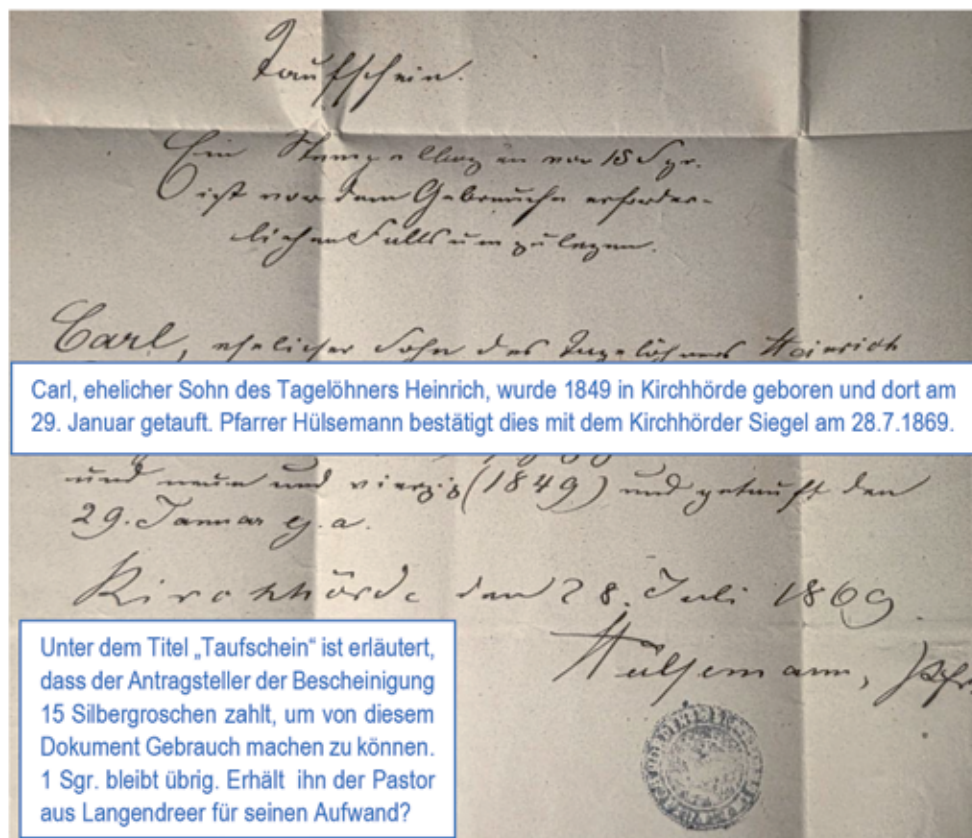 Taufschein.
Ein Stempelbogen von 15 Sgr.
ist vor dem Gebrauche erforder-
lichen Falls umzulegen.
Carl, ehelicher Sohn des Tagelöhners Heinrich
Carl, ehelicher Sohn des Tagelöhners Heinrich, wurde 1849 in Kirchhörde geboren und dort am
29. Januar getauft. Pfarrer Hülsemann bestätigt dies mit dem Kirchhörder Siegel am 28.7.1869.
und neun und vierzig (1849) und getauft den
29. Januar ej. a.
Kirchhörde den 28. Juli 1869
Hülsemann, Pfr
Unter dem Titel „Taufschein“ ist erläutert,
dass der Antragsteller der Bescheinigung
15 Silbergroschen zahlt, um von diesem
Dokument Gebrauch machen zu können.
1 Sgr. bleibt übrig. Erhält ihn der Pastor
aus Langendreer für seinen Aufwand?